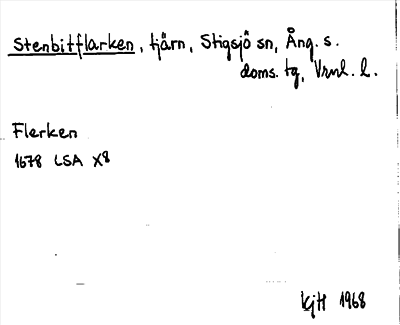 Stenbitflarken, tjärn, Stigsjö sn, Ång. s.
doms. tg, Vrnl. l.
Flerken
1678 LSA X8
KjH 1968